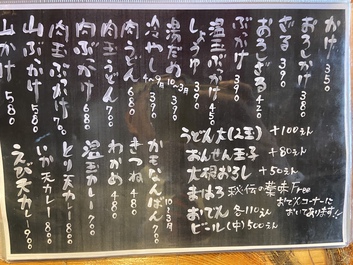 かけ 350
おろしかけ 390
ざる 390
おろしざる 450
ぶっかけ 390
温玉ぶっかけ 450
しょうゆ 390
湯だめ 10〜3月 390
冷やし 4〜9月 390
肉うどん 680
肉玉うどん 700
肉ぶっかけ 680
肉玉ぶっかけ 700
山ぶっかけ 580
山かけ 580
かもなんばん 10〜3月 700
きつね 480
わかめ 480
温玉カレー 700
とり天カレー 800
いか天カレー 800
えび天カレー 900
うどん大(2玉) +100えん
おんせん玉子 +80えん
大根おろし +50えん
まほろ秘伝の薬味 Free
おでん 各110えん
おでんコーナーにおいてあります!!
ビール(中)500えん